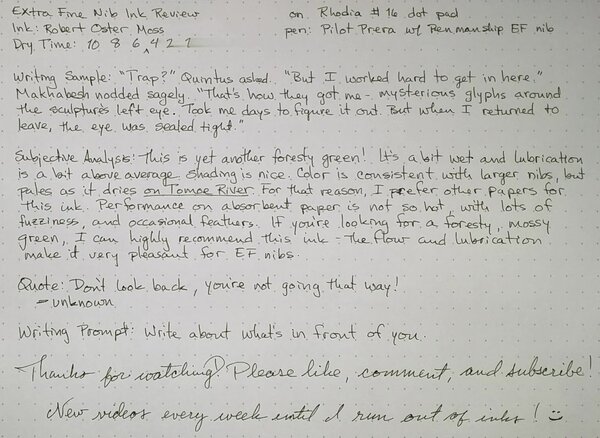 Extra Fine Nib Ink Review on Rhodia #16 dot pad
Ink: Robert Oster Moss pen: Pilot Prera w/ Penmanship EF nib
Dry Time: 10 8 6 4 2 1
Writing Sample: "Trap?" Quintus asked. "But I worked hard to get in here."
Makhabesh nodded sagely. "That's how they got me - mysterious glyphs around
the sculpture's left eye. Took me days to figure it out. But when I returned to
leave, the eye was sealed tight."
Subjective Analysis: This is yet another foresty green! It's a bit wet and lubrication
is a bit above average. Shading is nice. Color is consistent with larger nibs, but
pales as it dries on Tomoe River. For that reason, I prefer other papers for
this ink. Performance on absorbent paper is not so hot, with lots of
fuzziness, and occasional feathers. If you're looking for a foresty, mossy
green, I can highly recommend this ink - The flow and lubrication
make it very pleasant for EF nibs.
Quote: Don't look back, you're not going that way!
- unknown
Writing Prompt: Write about what's in front of you.
Thanks for watching! Please like, comment, and subscribe!
New videos every week until I run out of inks! :)